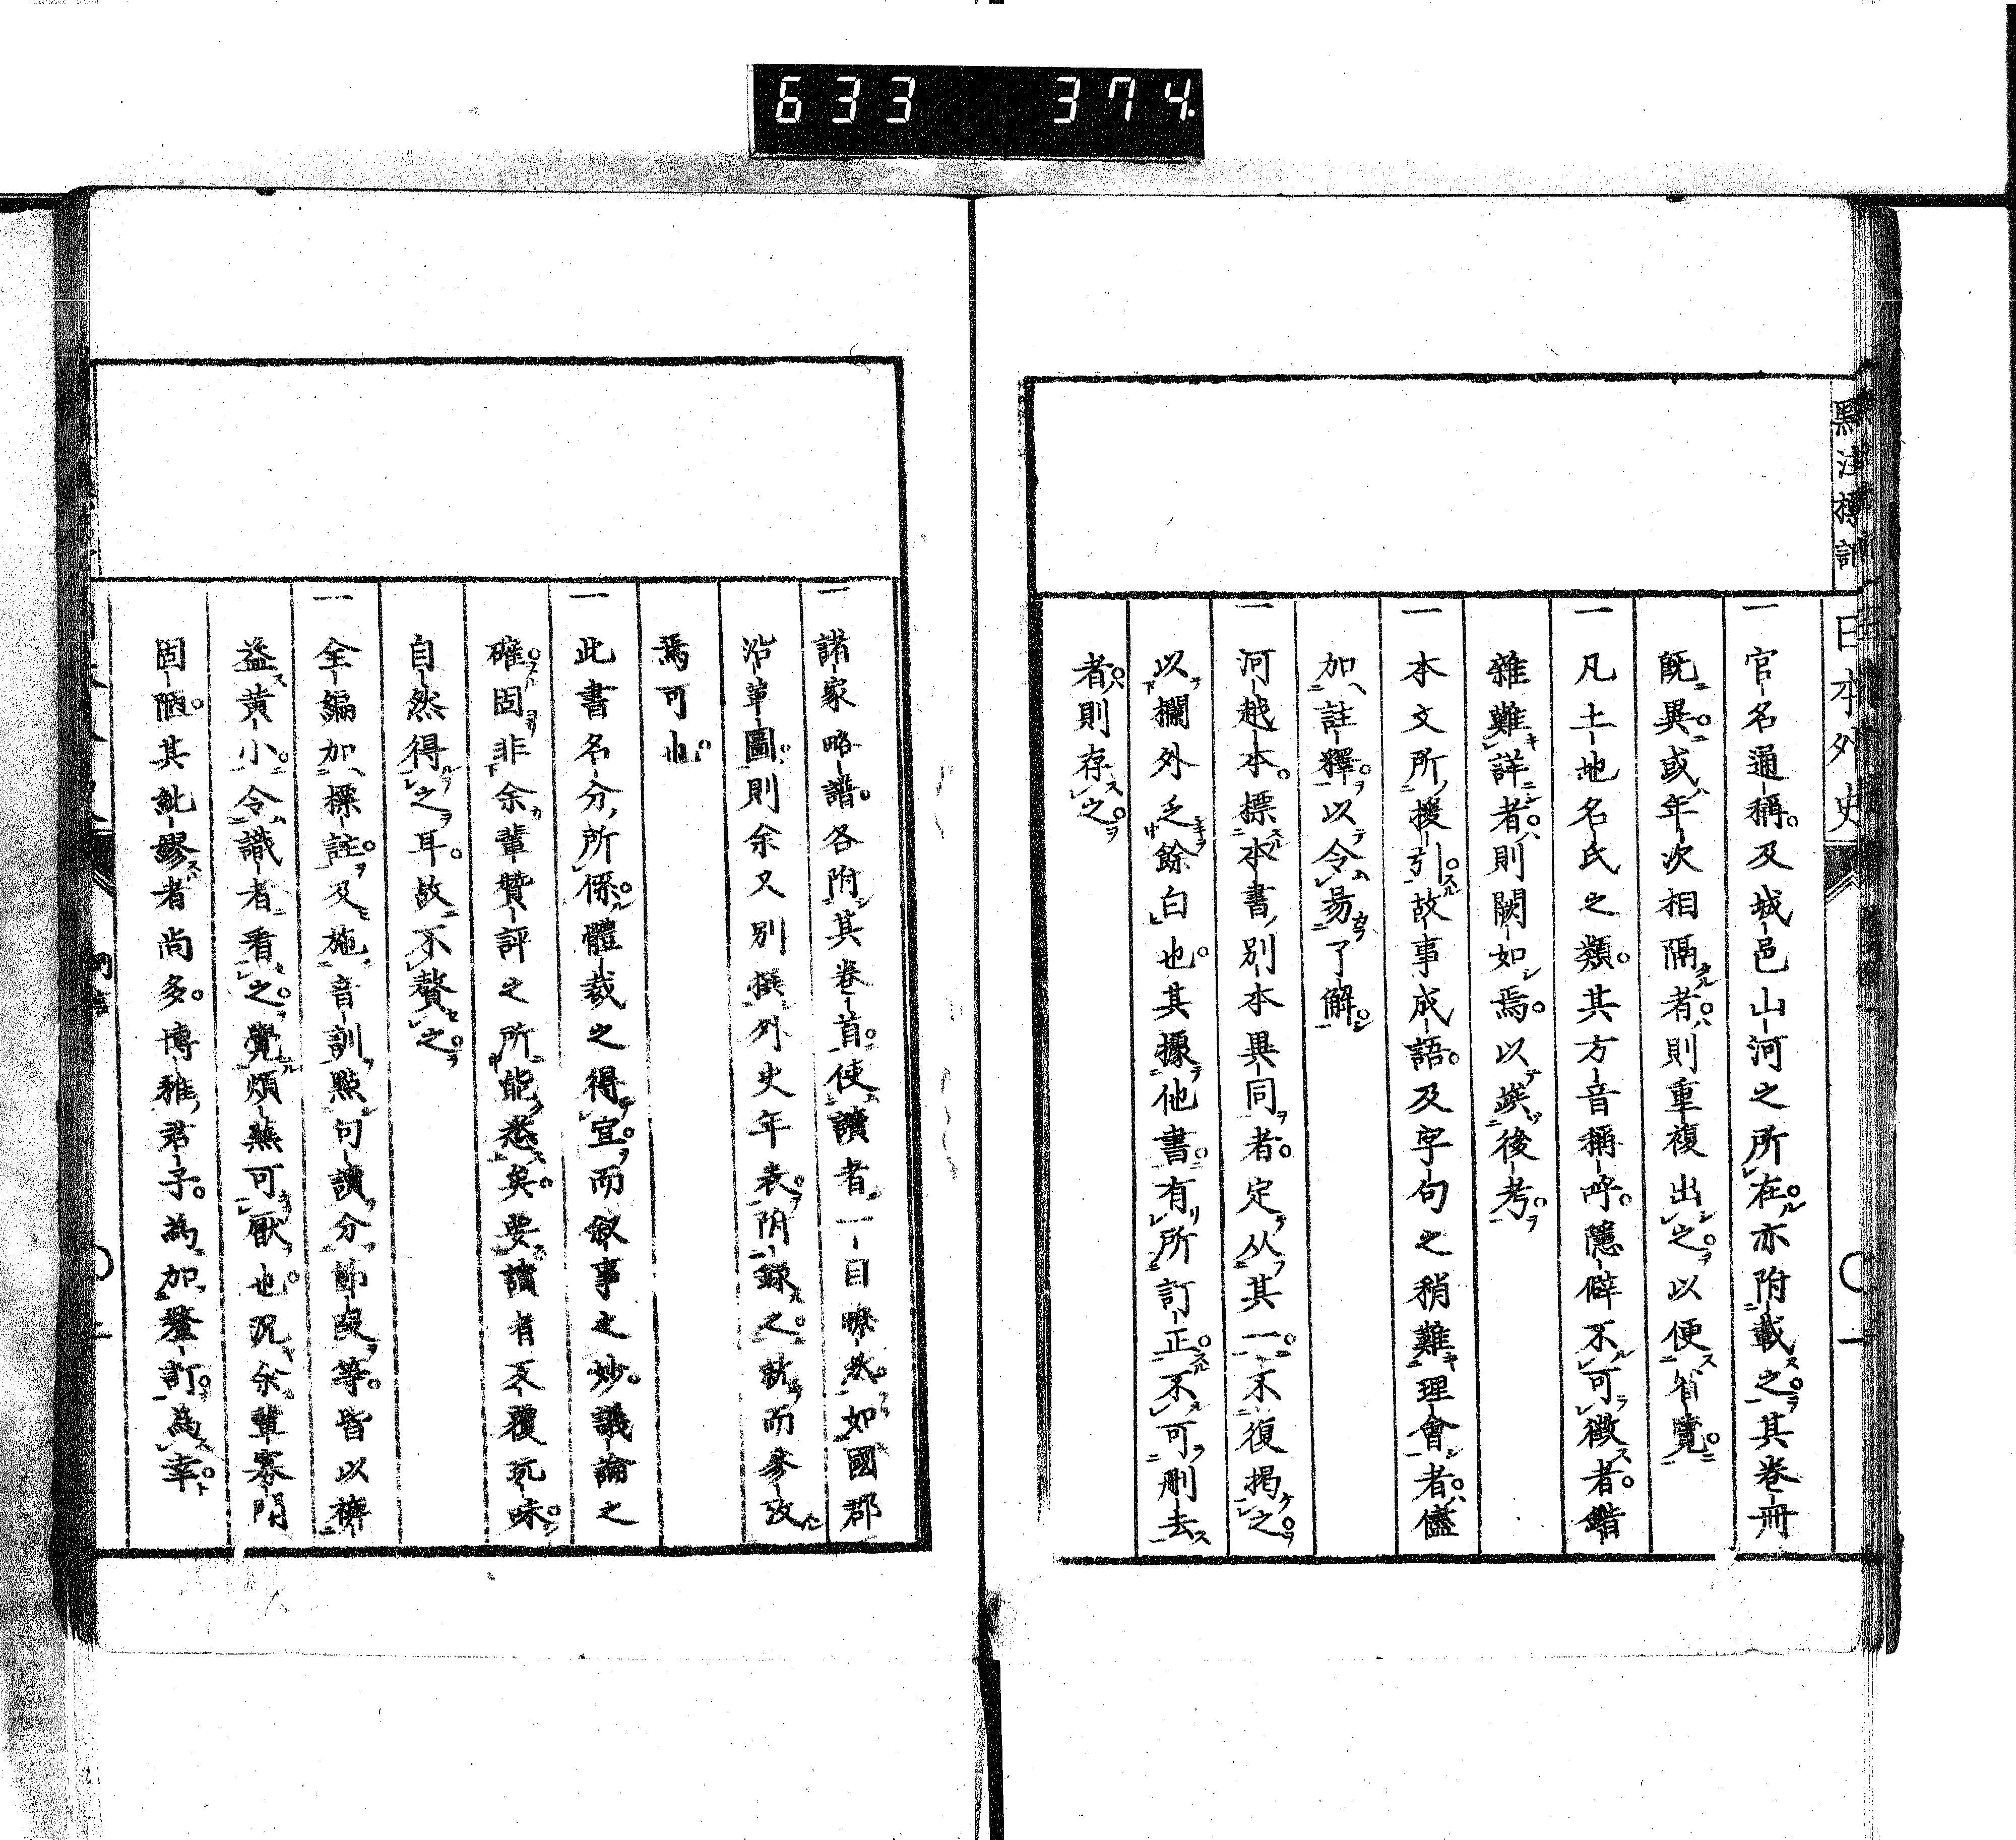 633 374
日本外史
一官名通稱及城邑山河之所在亦附載之其卷冊
既異或年次相隔者則重複出之以便省覽
一凡土地名氏之類其方音稱呼隱僻不可徵者錯
雜難詳者則闕如焉以竢後考
一本文所援引故事成語及字句之稍難理會者儘
加註釋以令易了解
一河越本標本書別本異同者定从其一不復揭之
以欄外乏餘白也其據他書有所訂正不可刪去
者則存之
一諸家略譜各附其卷首使讀者一目瞭然如國郡
沿革圖則余又別撰外史年表附錄之就而參攷
焉可也
一此書名分所係體裁之得宜而叙事之妙議論之
確固非余輩贊評之所能悉矣要讀者反覆玩味
自然得之耳故不贅之
一全編加標註及施音訓點句讀分節段等皆以裨
益黃小令識者看之覺煩蕪可厭也況余輩寡聞
固陋其紕繆者尚多博雅君子為加釐訂為幸